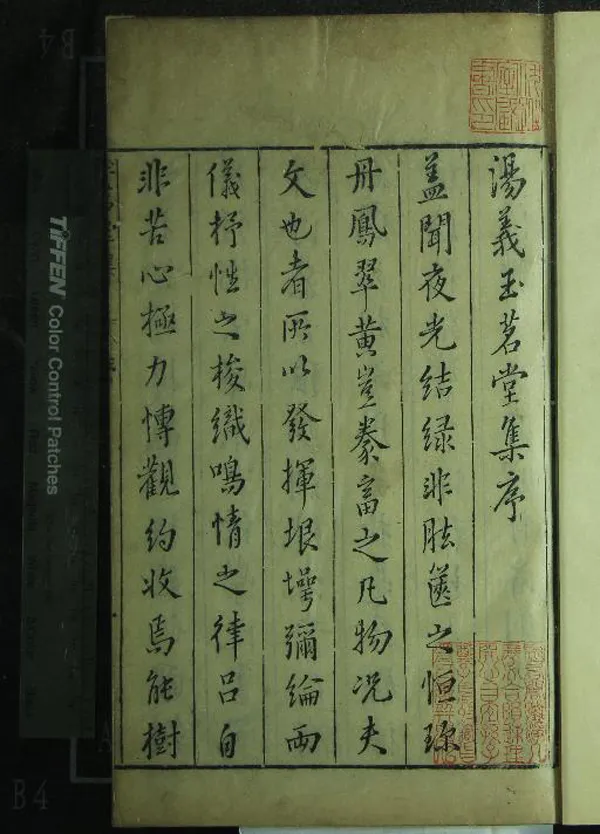 湯義玉茗堂集序
葢聞夜光結緑非胠篋之恒珎
丹鳳翠黄豈豢畜之凡物况夫
文也者所以發揮垠堮彌綸兩
儀抒性之梭織鳴情之律吕自
非苦心極力博觀約收焉能樹
TIFFEN Color Control Patches
B4